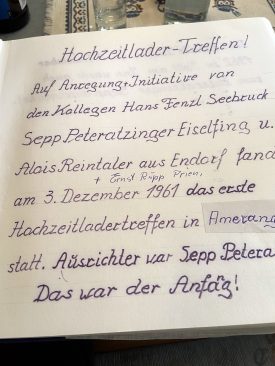 Hochzeitlader-Treffen!
Auf Anregung + Initiative von
den Kollegen Hans Fenzl Seebruck
Sepp Peteratzinger Eiselfing u.
Alois Reintaler aus Endorf fand
+ Ernst Rupp Prien,
am 3. Dezember 1961 das erste
Hochzeitladertreffen in Amerang
statt. Ausrichter war Sepp Petera
Das war der Anfang!